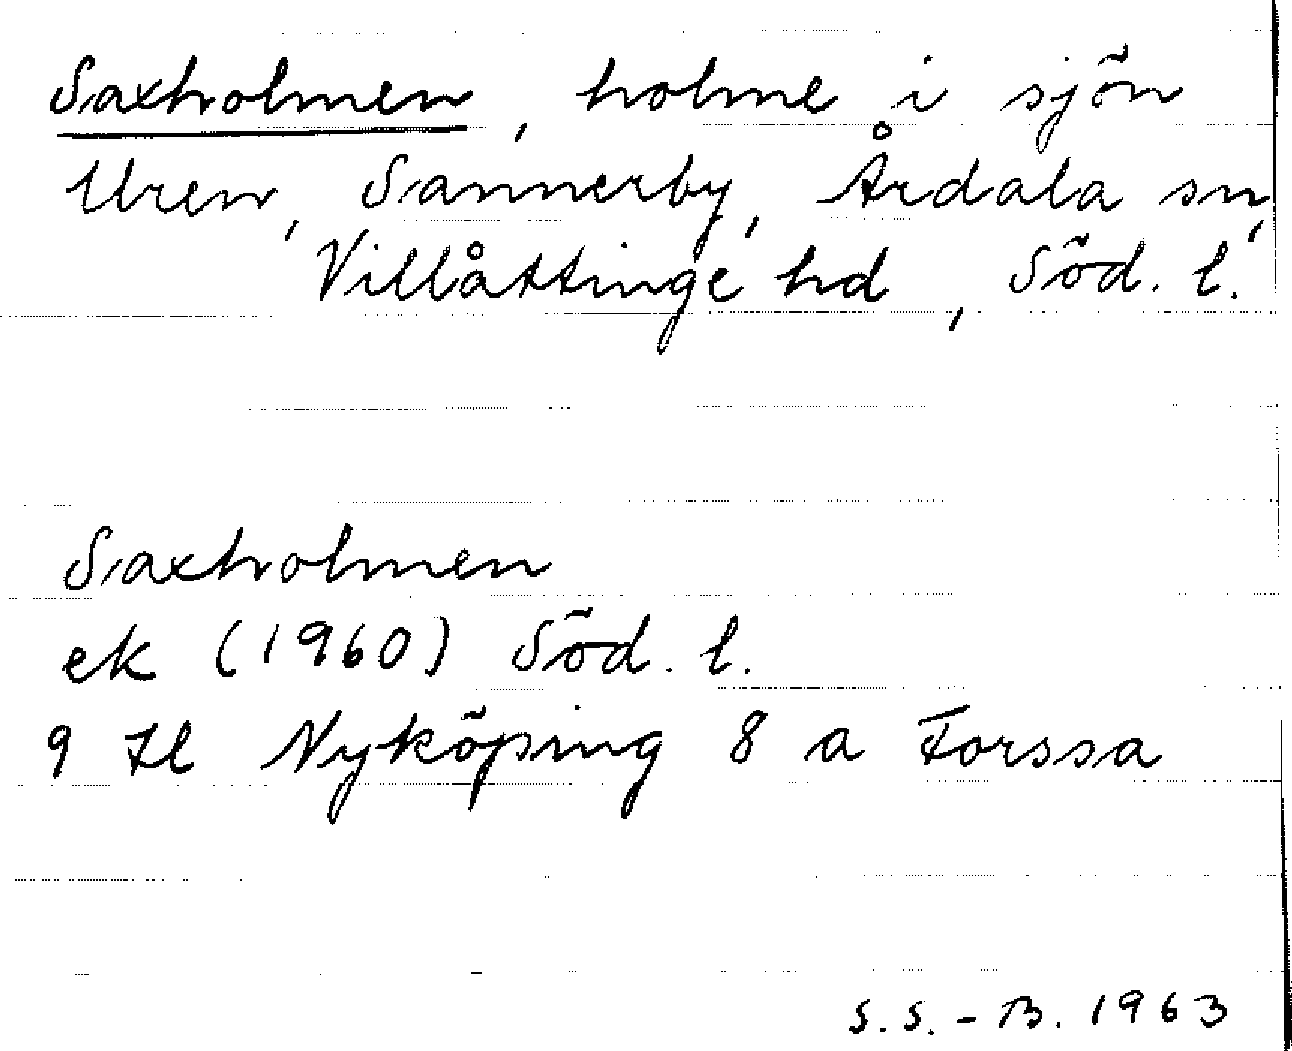 Saxholmen, holme i sjön
Uren, Sannerby, Årdala sn,
Villåttinge hd, Söd. l.
Saxholmen
ek (1960) Söd. l.
9 H l Nyköping 8 a Forssa
S.S.-B. 1963